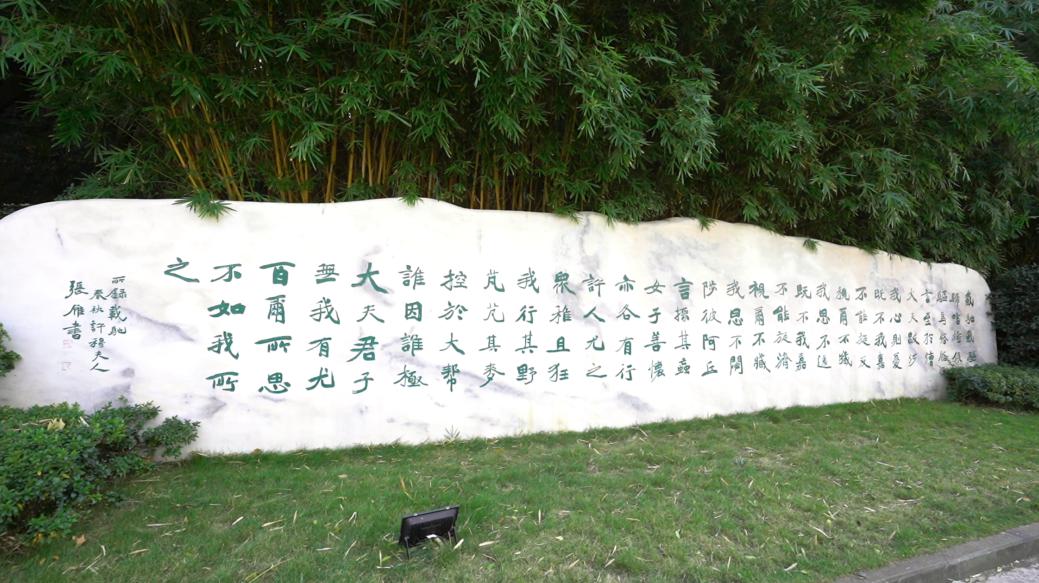 載馳載驅
歸唁衛侯
驅馬悠悠
言至於漕
大夫跋涉
我心則憂
既不我嘉
不能旋反
視爾不臧
我思不遠
既不我嘉
不能旋濟
視爾不臧
我思不閟
陟彼阿丘
言採其蝱
女子善懷
亦各有行
許人尤之
眾稚且狂
我行其野
芃芃其麥
控於大邦
誰因誰極
大夫君子
無我有尤
百爾所思
不如我所
之
錄載馳
春秋許穆夫人
張雁書